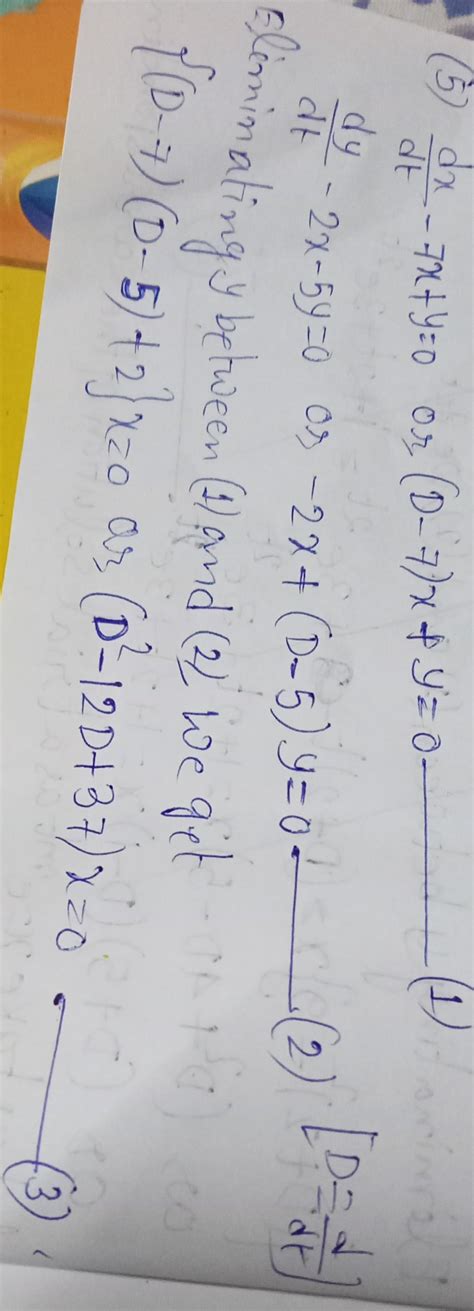 (5) dx/dt - 7x + y = 0 or, (D - 7)x + y = 0 — (1)
dy/dt - 2x - 5y = 0 or, -2x + (D - 5)y = 0 — (2) [D ≡ d/dt]
Eliminating y between (1) and (2), we get
{(D - 7)(D - 5) + 2}x = 0 or, (D² - 12D + 37)x = 0 — (3)